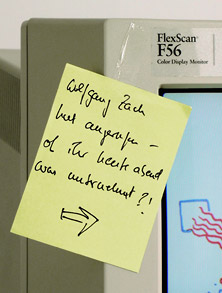 FlexScan
F56
Color Display Monitor
Wolfgang Zach
hat angerufen –
ob ihr heute abend
was unternehmt?!